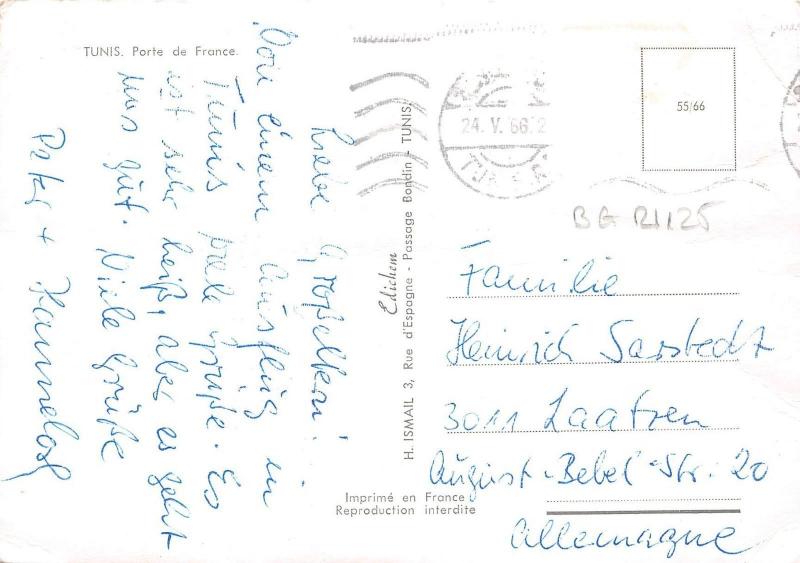 TUNIS. Porte de France.
Liebe Großeltern!
Von einem Ausflug in
Tunis viele Grüße. Es
ist sehr heiß, aber es geht
uns gut. Viele Grüße
Peter + Hannelore
Edichem
H. ISMAIL 3, Rue d'Espagne - Passage Bondin - TUNIS.
Imprimé en France
Reproduction interdite
24. V. 66. 2
55/66
BG R1125
Familie
Heinrich Sarstedt
3011 Laatzen
August-Bebel-Str. 20
Allemagne